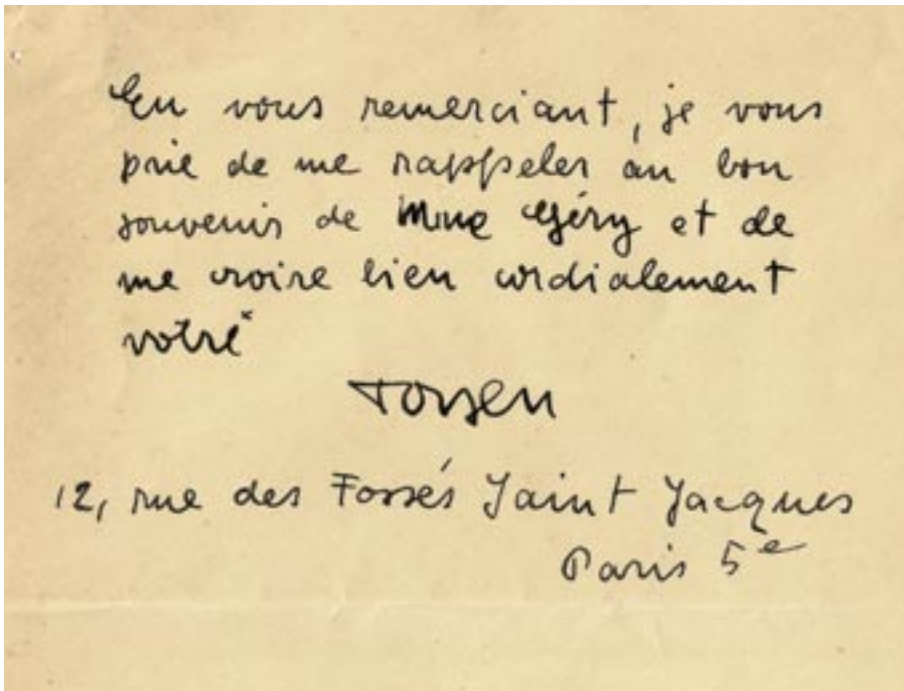 En vous remerciant, je vous
prie de me rappeler au bon
souvenir de Mme Géry et de
me croire bien cordialement
votre
Toyen
12, rue des Fossés Saint Jacques
Paris 5e